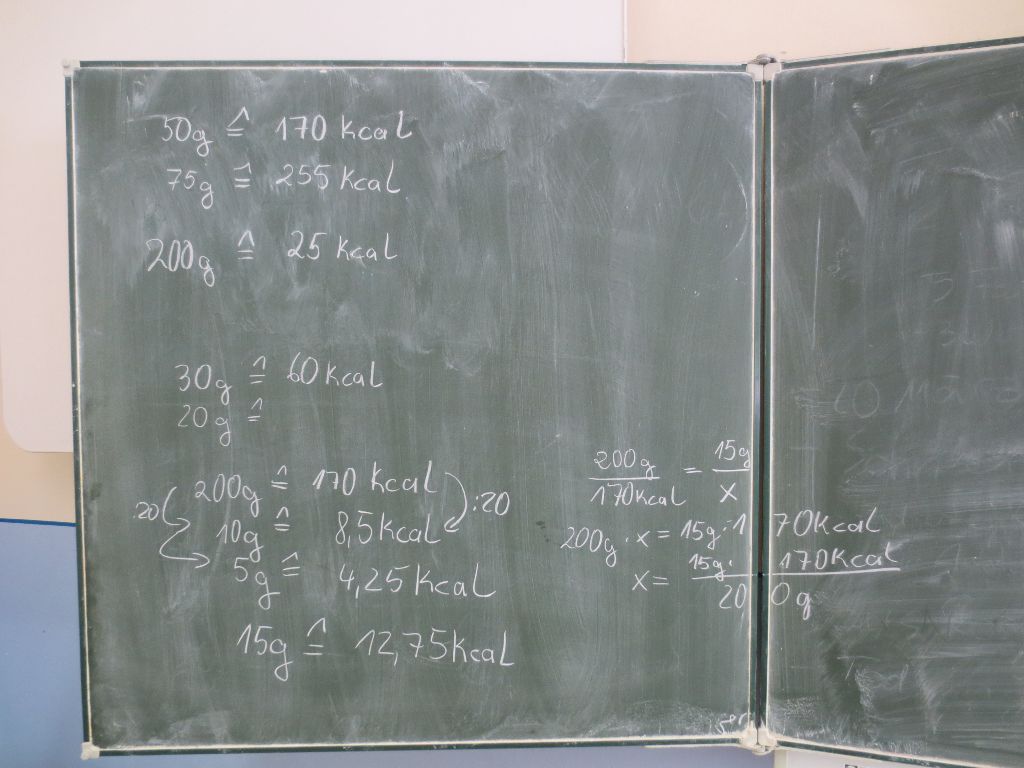 50g ≙ 170 kcal
75g ≙ 255 kcal
200g ≙ 25 kcal
30g ≙ 60 kcal
20g ≙
200g ≙ 170 kcal :20
:20 10g ≙ 8,5 kcal
5g ≙ 4,25 kcal
15g ≙ 12,75 kcal
200g / 170kcal = 15g / x
200g · x = 15g · 170kcal
x = 15g · 170kcal / 200g